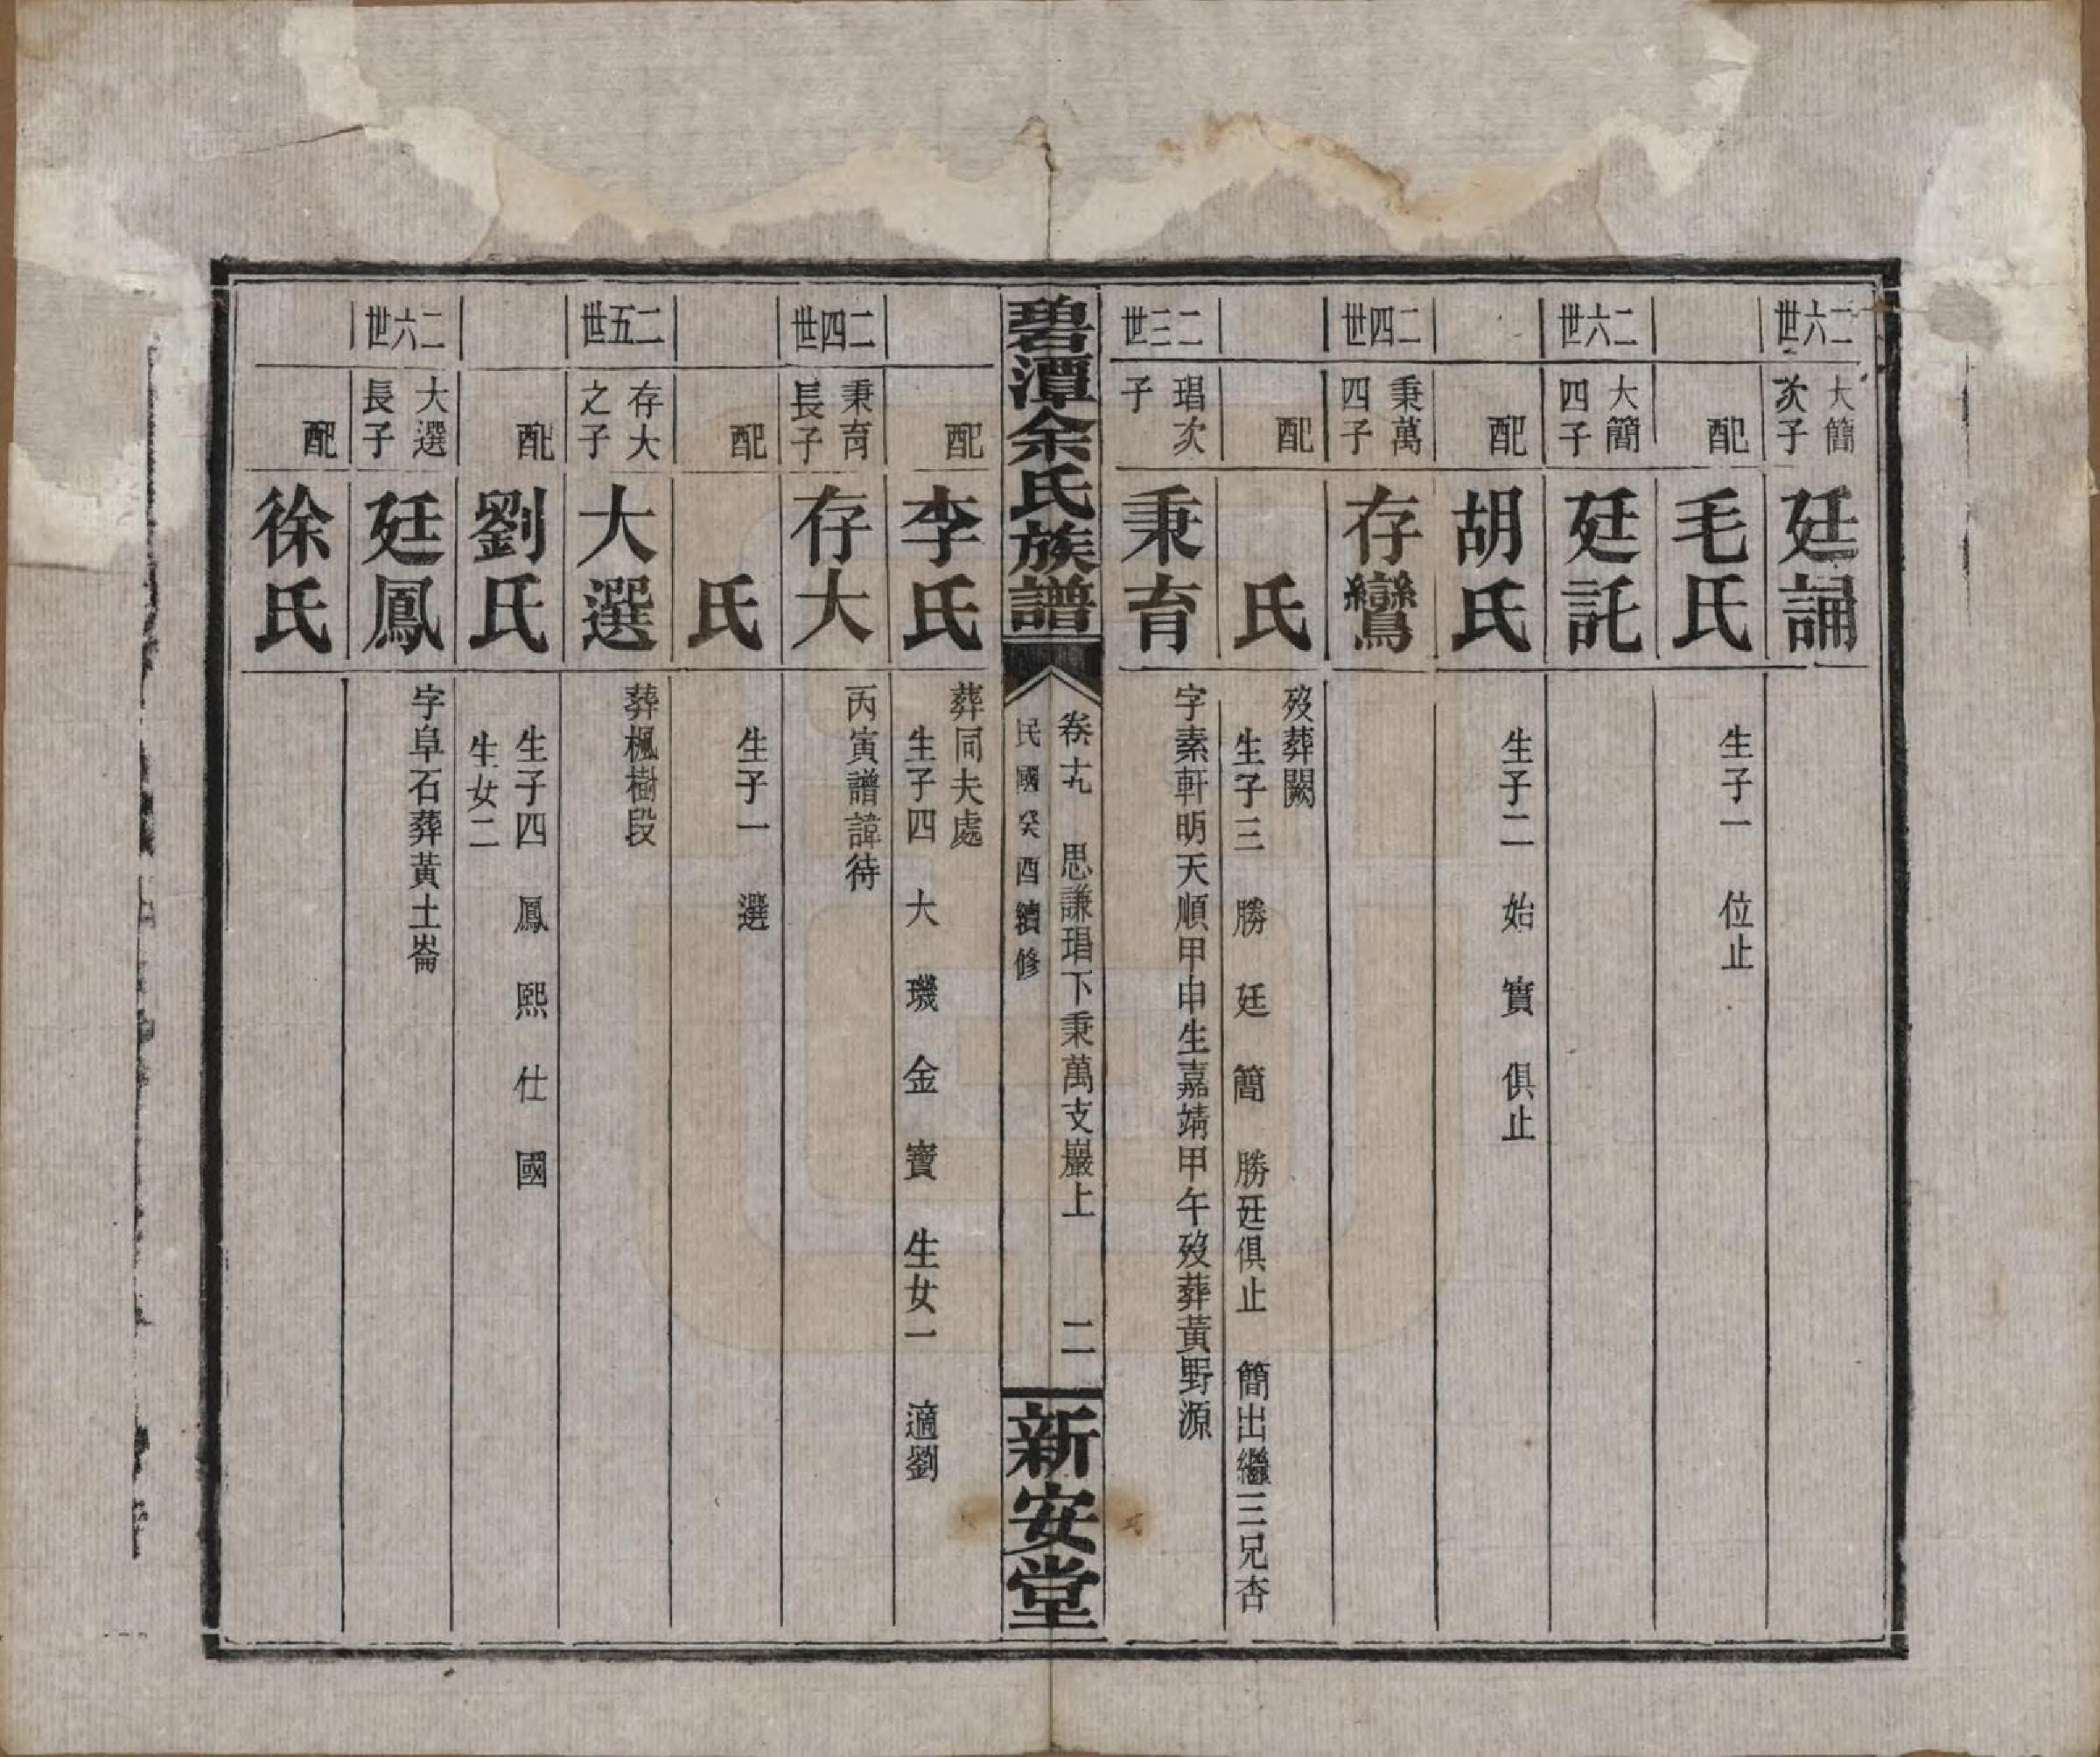 二六世
大簡次子
廷誦
配
毛氏
生子一　位止
二六世
大簡四子
廷託
配
胡氏
生子二　始　實　俱止
二四世
秉萬四子
存鸞
歿葬闕
配
氏
生子三　勝　廷　簡　勝廷俱止　簡出繼三兄杏
二三世
琩次子
秉育
字素軒明天順甲申生嘉靖甲午歿葬黃野源
碧潭余氏族譜
卷十九　思謙琩下秉萬支巖上　二
民國癸酉續修
新安堂
葬同夫處
配
李氏
生子四　大　璣　金　寶　生女一　適劉
二四世
秉育長子
存大
丙寅譜諱待
配
氏
生子一　選
二五世
存大之子
大選
葬楓樹段
配
劉氏
生子四　鳳　熙　仕　國
生女二
二六世
大選長子
廷鳳
字阜石葬黃土崙
配
徐氏